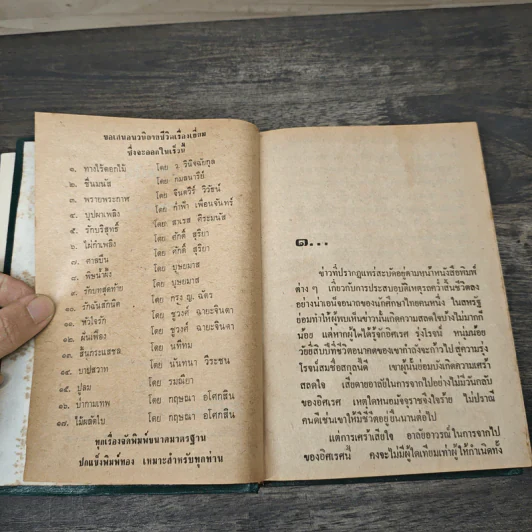 ขอเสนอนวนิยายชีวิตเรื่องเยี่ยม
ซึ่งจะออกในเร็วนี้
๑. ทางไร้ดอกไม้ โดย ว. วินิจฉัยกุล
๒. ชื่นมนัส โดย กมลนารีย์
๓. พรายพระกาฬ โดย จินตวีร์ วิวัธน์
๔. บุปผาเพลิง โดย กำฟ้า เพื่อนจันทร์
๕. รักบริสุทธิ์ โดย สาเรส ศิระมนัส
๖. ไม้กำเพลิง โดย ศักดิ์ สุริยา
๗. ศาลปืน โดย ศักดิ์ สุริยา
๘. พิษน้ำผึ้ง โดย บุษยมาส
๙. รักบทสุดท้าย โดย บุษยมาส
๑๐. รักฉันสักนิด โดย ญ. ฉัตร
๑๑. หัวใจรัก โดย ชูวงศ์ ฉายะจินดา
๑๒. ฝันเฟื่อง โดย ชูวงศ์ ฉายะจินดา
๑๓. สิ้นกระแสชล โดย นทีทม
๑๔. บาปสวาท โดย นันทนา วีระชน
๑๕. ปูลม โดย รมณียา
๑๖. ป่ากามเทพ โดย กฤษณา อโศกสิน
๑๗. ไม้ผลัดใบ โดย กฤษณา อโศกสิน
ทุกเรื่องจัดพิมพ์ขนาดมาตรฐาน
ปกแข็งพิมพ์ทอง เหมาะสำหรับทุกท่าน
๑...
ข่าวที่ปรากฏแพร่สะบัดอยู่ตามหน้าหนังสือพิมพ์
ต่าง ๆ เกี่ยวกับการประสบอุบัติเหตุรถคว่ำสิ้นชีวิตลง
อย่างน่าเอน็จอนาถของนักศึกษาไทยคนหนึ่ง ในสหรัฐ
ย่อมทำให้ผู้พบเห็นข่าวนั้นเกิดความสลดใจบ้างไม่มากก็
น้อย แต่หากผู้ใดได้รู้จักอิศเรศ รุ่งโรจน์ หนุ่มน้อย
วัยยี่สิบปีที่ชีวิตอนาคตของเขากำลังจะก้าวไป สู่ความรุ่ง
โรจน์สมชื่อสกุลนี้ดี เขาผู้นั้นย่อมบังเกิดความเศร้า
สลดใจ เสียดายอาลัยในการจากไปอย่างไม่มีวันกลับ
ของอิศเรศ เหตุใดหนอมัจจุราชจึงใจร้าย ไม่ปรานี
คนดีเช่นเขาให้มีชีวิตอยู่ยืนนานต่อไป
แต่การเศร้าเสียใจ อาลัยอาวรณ์ในการจากไป
ของอิศเรศนี้ คงจะไม่มีผู้ใดเทียมเท่าผู้ให้กำเนิดทั้ง